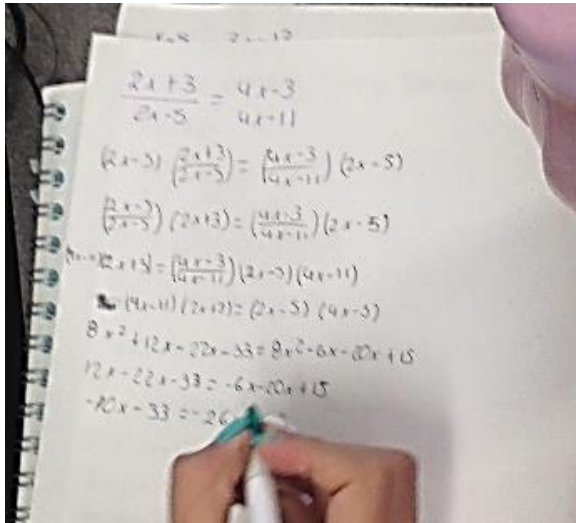 2x+3/2x-5 = 4x-3/4x-11
(2x-5) (2x+3/2x-5) = (4x-3/4x-11) (2x-5)
(2x-5/2x-5) (2x+3) = (4x-3/4x-11) (2x-5)
(2x+3) = (4x-3/4x-11) (2x-5) (4x-11)
(4x-11) (2x+3) = (2x-5) (4x-3)
8x²+12x-22x-33=8x²-6x-20x+15
12x-22x-33=-6x-20x+15
-10x-33=-26